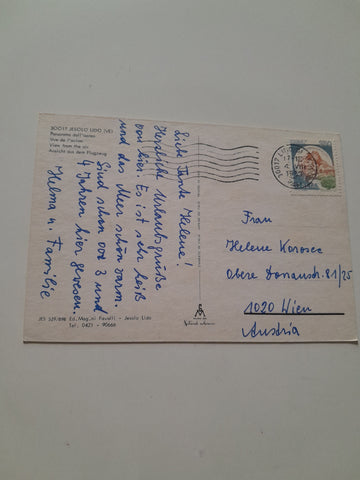 30017 JESOLO LIDO (VE)
Panorama dall'aereo
Vue de l'avion
View from the air
Ansicht aus dem Flugzeug
Liebe Tante Helene!
Herzliche Urlaubsgrüße
von hier. Es ist sehr heiß
und das Meer schön warm.
Sind schon vor 3 und
4 Jahren hier gewesen.
Helma u. Familie
30017
Frau
Helene Korosec
Obere Donaustr. 81/25
1020 Wien
Austria
JES 529/898 Ed. Mag.ni - Jesolo Lido
Tel. 0421 - 90668